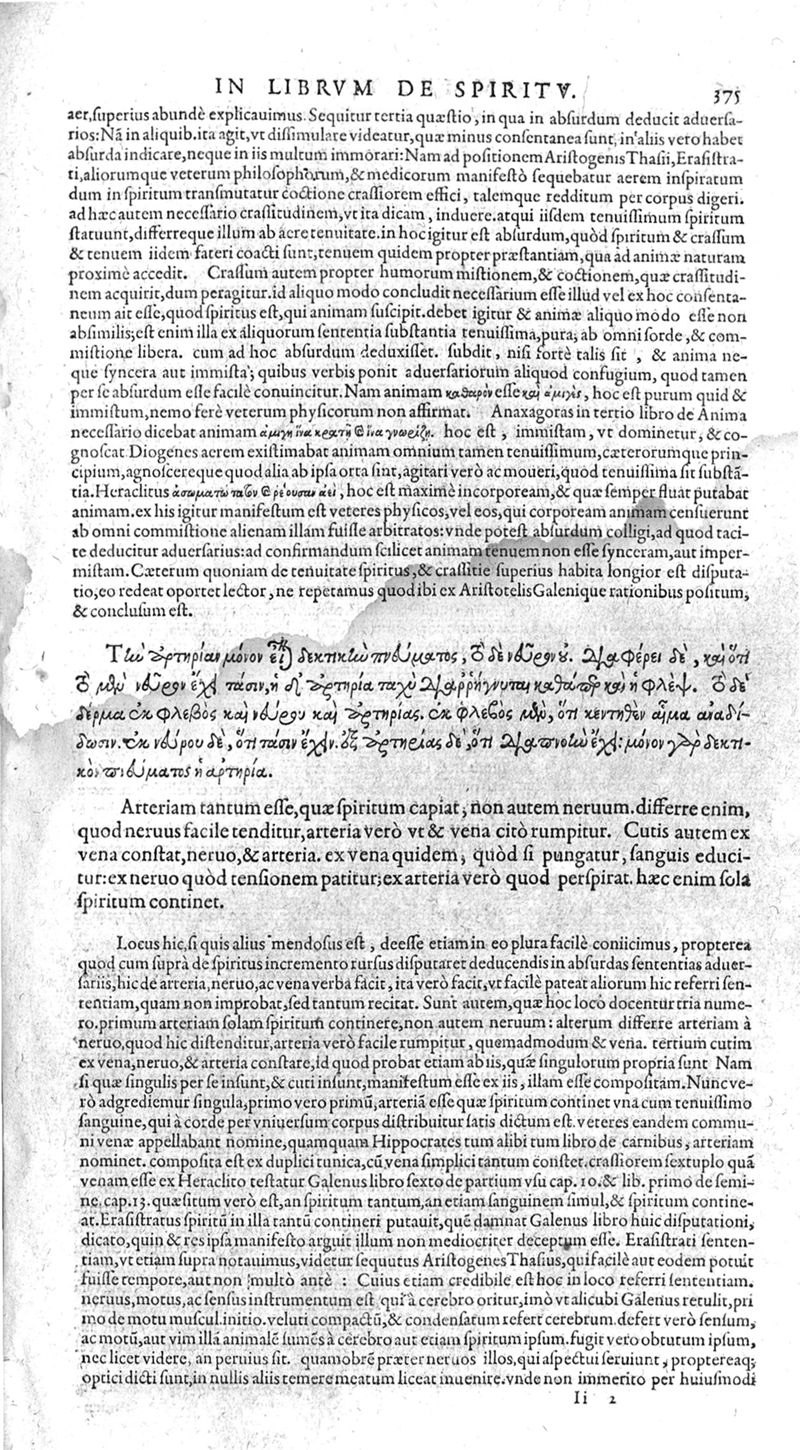 IN LIBRVM DE SPIRITV. 375
aer, ſuperius abundè explicauimus. Sequitur tertia quæſtio, in qua in abſurdum deducit aduerſa-
rios: Nã in aliquib. ita agit, vt diſſimulare videatur, quæ minus conſentanea ſunt, in aliis vero habet
abſurda indicare, neque in iis multum immorari: Nam ad poſitionem Ariſtogenis Thaſii, Eraſiſtra-
ti, aliorumque veterum philoſophorum, & medicorum manifeſtò ſequebatur aerem inſpiratum
dum in ſpiritum tranſmutatur coctione craſſiorem effici, talemque redditum per corpus digeri.
ad hæc autem neceſſario craſſitudinem, vt ita dicam, induere. atqui iiſdem tenuiſſimum ſpiritum
ſtatuunt, differreque illum ab aere tenuitate. in hoc igitur eſt abſurdum, quòd ſpiritum & craſſum
& tenuem iidem fateri coacti ſunt, tenuem quidem propter præſtantiam, qua ad animæ naturam
proximè accedit. Craſſum autem propter humorum miſtionem, & coctionem, quæ craſſitudi-
nem acquirit, dum peragitur. id aliquo modo concludit neceſſarium eſſe illud vel ex hoc conſenta-
neum ait eſſe, quod ſpiritus eſt, qui animam ſuſcipit. debet igitur & animæ aliquo modo eſſe non
abſimilis; eſt enim illa ex aliquorum ſententia ſubſtantia tenuiſſima, pura, ab omni ſorde, & com-
miſtione libera. cum ad hoc abſurdum deduxiſſet. ſubdit, niſi fortè talis ſit, & anima ne-
que ſyncera aut immiſta; quibus verbis ponit aduerſariorum aliquod confugium, quod tamen
per ſe abſurdum eſſe facilè conuincitur. Nam animam καθαρὸν eſſe καὶ ἀμιγὲς, hoc eſt purum quid &
immiſtum, nemo ferè veterum phyſicorum non affirmat. Anaxagoras in tertio libro de Anima
neceſſario dicebat animam ἀμιγῆ ἵνα κρατῇ & ἵνα γνωρίζῃ. hoc eſt, immiſtam, vt dominetur, & co-
gnoſcat. Diogenes aerem exiſtimabat animam omnium tamen tenuiſſimum, cæterorumque prin-
cipium, agnoſcereque quod alia ab ipſa orta ſint, agitari verò ac moueri, quòd tenuiſſima ſit ſubſtã-
tia. Heraclitus ἀσωματώτατον & ῥέουσαν ἀεί, hoc eſt maximè incorpoream, & quæ ſemper fluat putabat
animam. ex his igitur manifeſtum eſt veteres phyſicos, vel eos, qui corpoream animam cenſuerunt
ab omni commiſtione alienam illam fuiſſe arbitratos: vnde poteſt abſurdum colligi, ad quod taci-
te deducitur aduerſarius: ad confirmandum ſcilicet animam tenuem non eſſe ſynceram, aut imper-
miſtam. Cæterum quoniam de tenuitate ſpiritus, & craſſitie ſuperius habita longior eſt diſputa-
tio, eo redeat oportet lector, ne repetamus quod ibi ex Ariſtotelis Galenique rationibus poſitum,
& concluſum eſt.
Τὴν ἀρτηρίαν μόνον εἶναι δεκτικὴν πνεύματος, τὸ δὲ νεῦρον οὔ. διαφέρει δὲ, καὶ ὅτι
τὸ μὲν νεῦρον ἔχει τάσιν, ἡ δ' ἀρτηρία ταχὺ διαρρήγνυται καθάπερ καὶ ἡ φλέψ. τὸ δὲ
δέρμα ἐκ φλεβὸς καὶ νεύρου καὶ ἀρτηρίας. ἐκ φλεβὸς μὲν, ὅτι κεντηθὲν αἷμα ἀναδί-
δωσιν. ἐκ νεύρου δὲ, ὅτι τάσιν ἔχει. ἐξ ἀρτηρίας δὲ, ὅτι διαπνοὴν ἔχει: μόνον γὰρ δεκτι-
κὸν πνεύματος ἡ ἀρτηρία.
Arteriam tantum eſſe, quæ ſpiritum capiat, non autem neruum. differre enim,
quod neruus facile tenditur, arteria verò vt & vena citò rumpitur. Cutis autem ex
vena conſtat, neruo, & arteria. ex vena quidem, quòd ſi pungatur, ſanguis educi-
tur: ex neruo quòd tenſionem patitur; ex arteria verò quod perſpirat. hæc enim ſola
ſpiritum continet.
Locus hic, ſi quis alius mendoſus eſt, deeſſe etiam in eo plura facilè coniicimus, propterea
quod cum ſuprà de ſpiritus incremento rurſus diſputaret deducendis in abſurdas ſententias aduer-
ſariis, hic de arteria, neruo, ac vena verba facit, ita verò facit, vt facilè pateat aliorum hic referri ſen-
tentiam, quam non improbat, ſed tantum recitat. Sunt autem, quæ hoc loco docentur tria nume-
ro. primum arteriam ſolam ſpiritum continere, non autem neruum: alterum differre arteriam à
neruo, quod hic diſtenditur, arteria verò facile rumpitur, quemadmodum & vena. tertium cutim
ex vena, neruo, & arteria conſtare, id quod probat etiam ab iis, quæ ſingulorum propria ſunt Nam
ſi quæ ſingulis per ſe inſunt, & cuti inſunt, manifeſtum eſſe ex iis, illam eſſe compoſitam. Nunc ve-
rò adgrediemur ſingula, primo vero primũ, arteriã eſſe quæ ſpiritum continet vna cum tenuiſſimo
ſanguine, qui à corde per vniuerſum corpus diſtribuitur ſatis dictum eſt. veteres eandem commu-
ni venæ appellabant nomine, quamquam Hippocrates tum alibi tum libro de carnibus, arteriam
nominet. compoſita eſt ex duplici tunica, cũ vena ſimplici tantum conſtet. craſſiorem ſextuplo quã
venam eſſe ex Heraclito teſtatur Galenus libro ſexto de partium vſu cap. 10. & lib. primo de ſemi-
ne. cap. 13. quæſitum verò eſt, an ſpiritum tantum, an etiam ſanguinem ſimul, & ſpiritum contine-
at. Eraſiſtratus ſpiritũ in illa tantũ contineri putauit, quẽ damnat Galenus libro huic diſputationi
dicato, quin & res ipſa manifeſto arguit illum non mediocriter deceptum eſſe. Eraſiſtrati ſenten-
tiam, vt etiam ſupra notauimus, videtur ſequutus Ariſtogenes Thaſius, qui facilè aut eodem potuit
fuiſſe tempore, aut non multò antè: Cuius etiam credibile eſt hoc in loco referri ſententiam.
neruus, motus, ac ſenſus inſtrumentum eſt qui à cerebro oritur, imò vt alicubi Galenus retulit, pri
mo de motu muſcul. initio. veluti compactũ, & condenſatum refert cerebrum. defert verò ſenſum,
ac motũ, aut vim illã animalẽ ſumẽs à cerebro aut etiam ſpiritum ipſum. fugit vero obtutum ipſum,
nec licet videre, an peruius ſit. quamobrẽ præter neruos illos, qui aſpectui ſeruiunt, proptereaq;
optici dicti ſunt, in nullis aliis temere meatum liceat inuenire. vnde non immerito per huiuſmodi
Ii 2